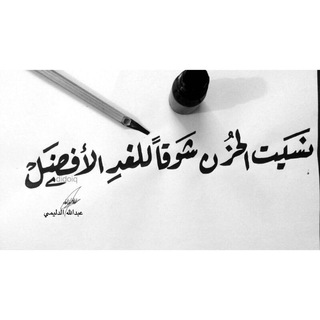 نسَيت الحُزن شَوقاً للغدِ الأفضَل
didoiq
عبدالله الدليمي